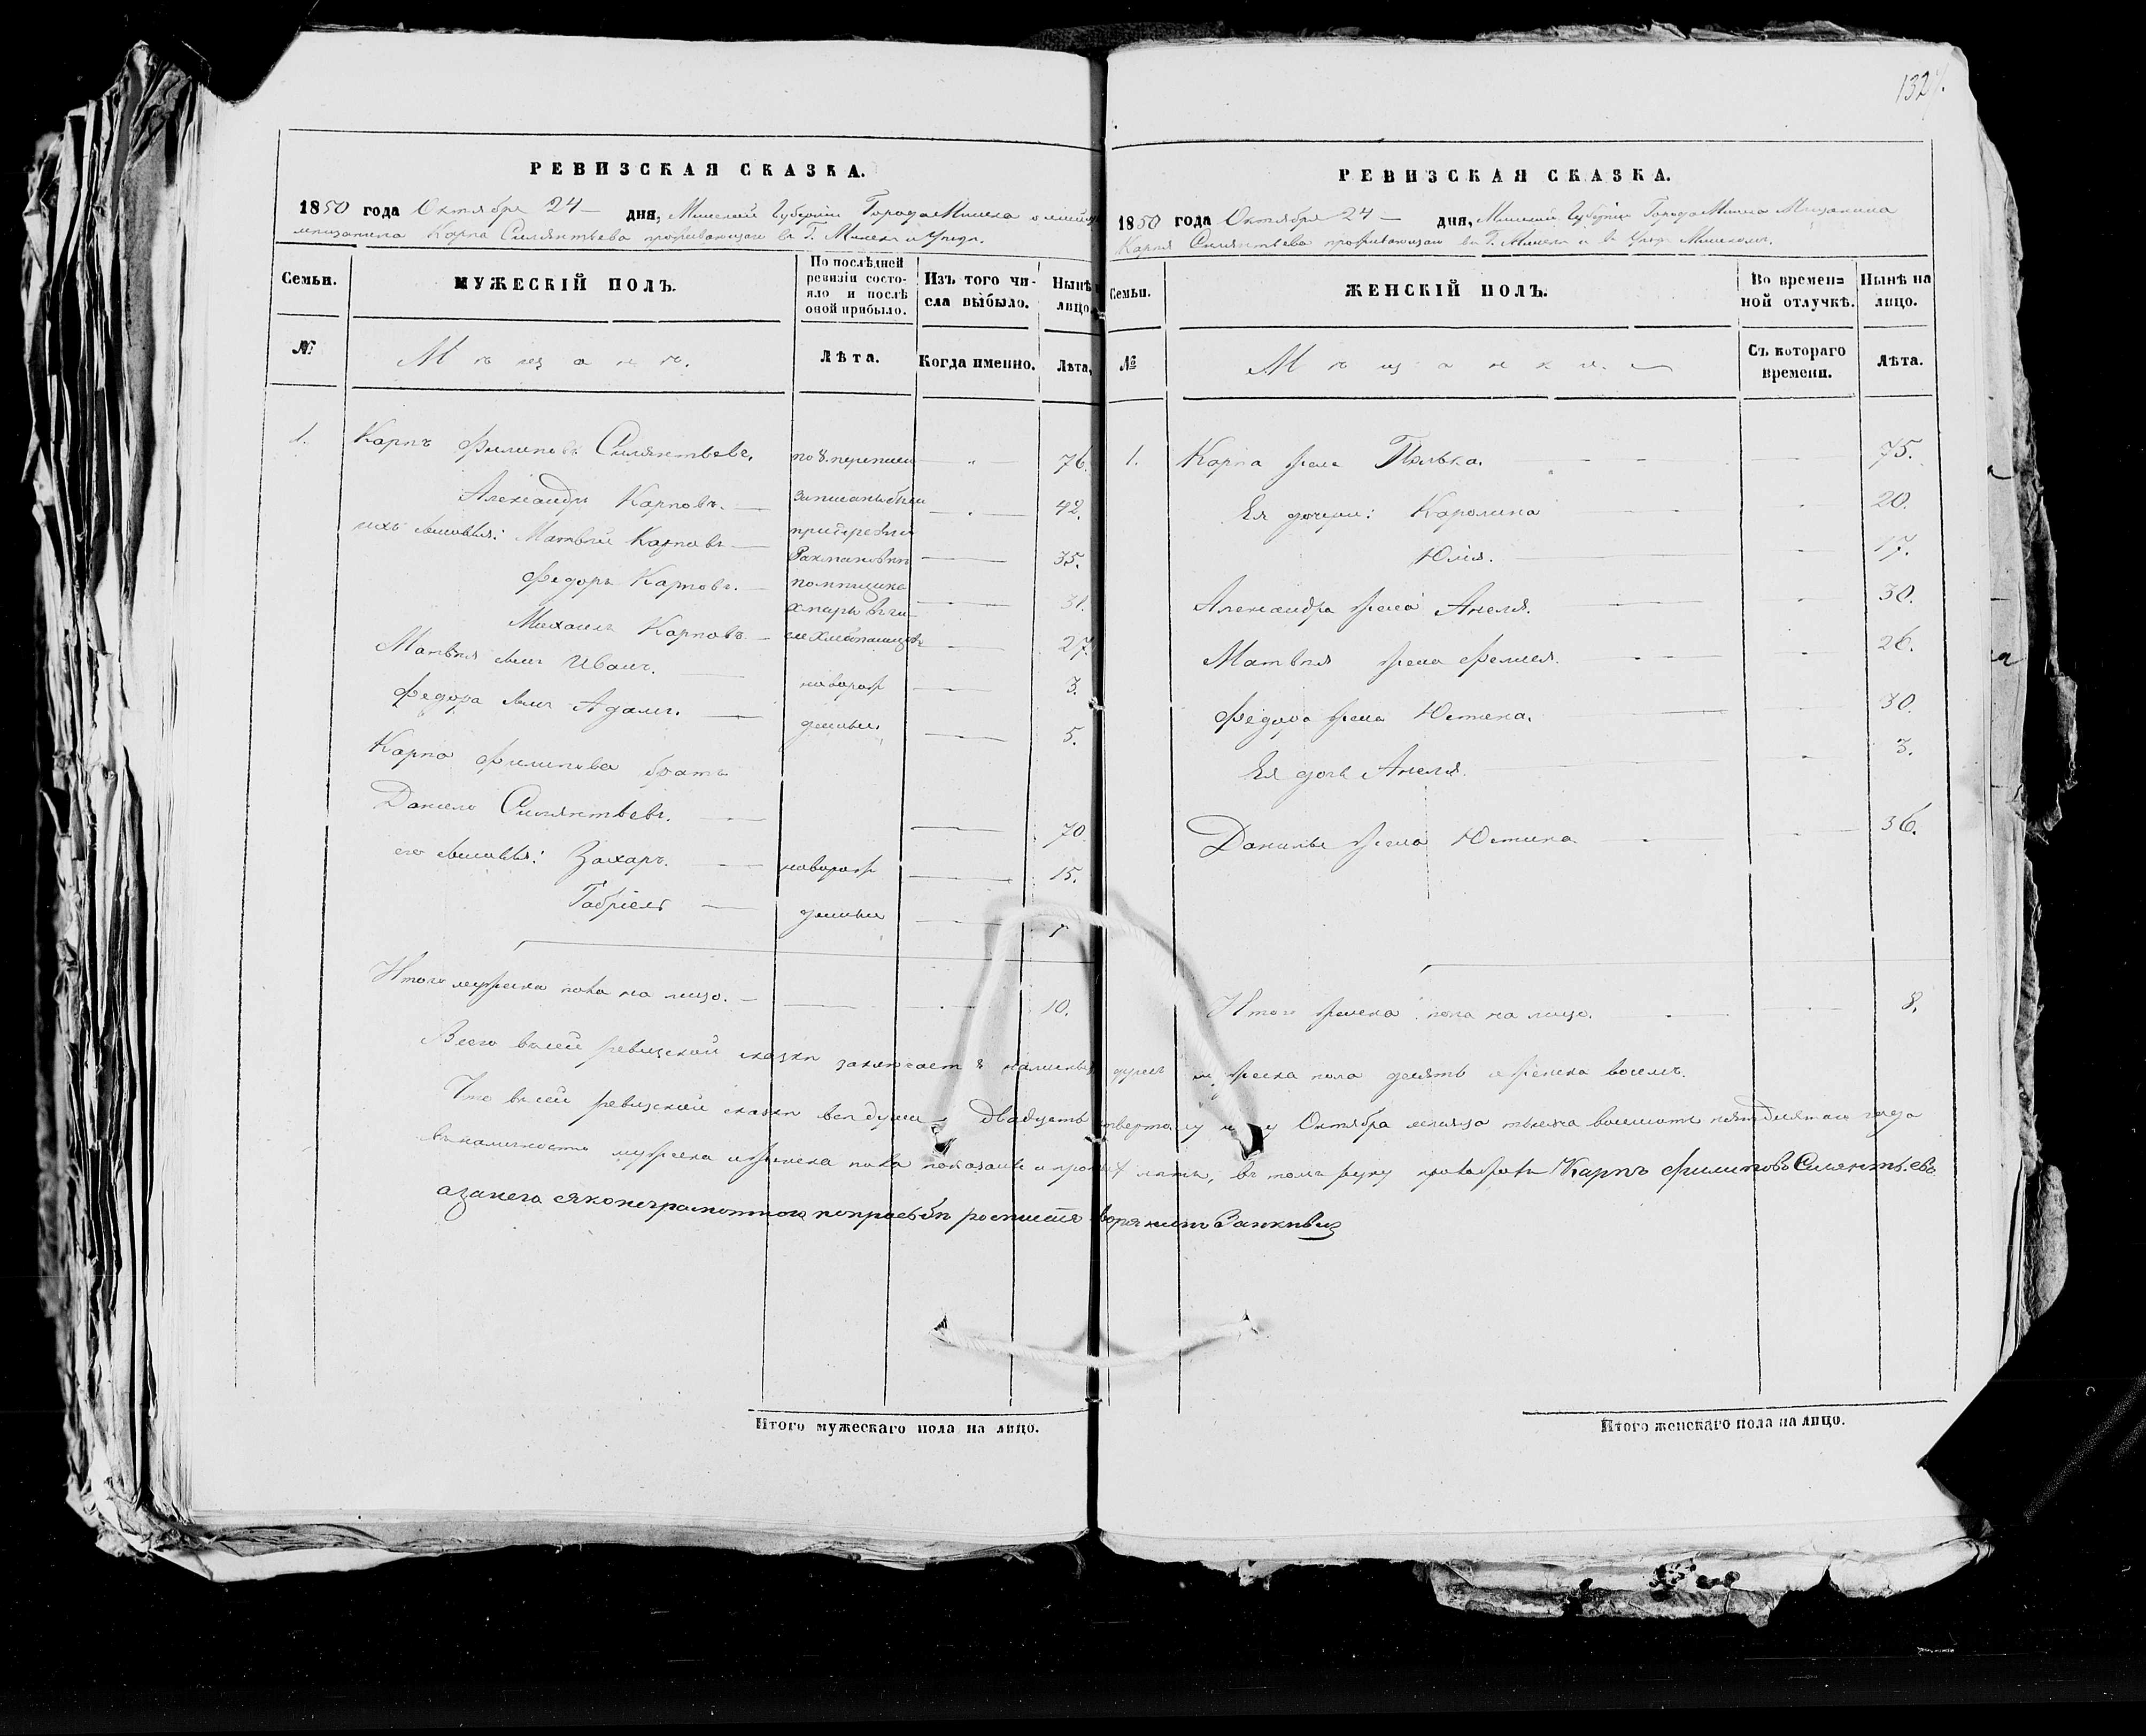 132
РЕВИЗСКАЯ СКАЗКА.
1850 года Октября 24 дня, Минской Губерніи Города Минска о
мѣщанина Карпа Силянтьева проживающаго въ Г. Минскѣ и Уѣздѣ.
Семьи.
МУЖЕСКІЙ ПОЛЪ.
По послѣдней ревизіи состояло и послѣ оной прибыло.
Изъ того числа выбыло.
Нынѣ лицо
№
Мѣщанъ.
Лѣта.
Когда именно.
Лѣта,
1. Карпъ Филиповъ Силянтьевъ. по 8 переписи 76.
Александръ Карповъ. записаны были 42.
ихъ сыновья: Матвѣй Карповъ 35.
Федоръ Карповъ. помѣщика 31.
Михаилъ Карповъ 27.
Матвѣя сынъ Иванъ. новорож 3.
Федора сынъ Адамъ. денные 5.
Карпа Филипова братъ
Данило Силянтьевъ. 70
его сыновья: Захаръ. новорож 15.
Габріель денные
Итого мужеска пола на лицо. 10.
РЕВИЗСКАЯ СКАЗКА.
1850 года Октября 24 дня, Минской Губерніи Города Минска Мѣщанина
Карпа Силянтьева проживающаго въ Г. Минскѣ и въ Уѣздѣ Минскомъ.
Семьи.
ЖЕНСКІЙ ПОЛЪ.
Во временной отлучкѣ.
Нынѣ на лицо.
№
Мѣщанки.
Съ котораго времени.
Лѣта.
1. Карпа жена 75.
Ея дочери: Каролина 20.
Юлія. 17.
Александра жена Анеля. 30.
Матвѣя жена Фелися. 26.
Федора жена Юстина. 30.
Ея дочь Анеля. 3.
Данилы жена Юстина 36.
Итого женска пола на лицо. 8.
Всего въ сей ревизской сказкѣ заключается наличныхъ душъ мужеска пола десять женска восемь.
Что въ сей ревизской сказкѣ всѣ души Двадцать четвертому числу Октября мѣсяца тысяча восемьсотъ пятдесятаго года
въ наличности мужеска и женска пола показаны и лѣтъ, въ томъ Карпъ Филиповъ Силянтьевъ
а за него яко неграмотнаго по прозьбѣ росписался дворянинъ
Итого мужескаго пола на лицо.
Итого женскаго пола на лицо.